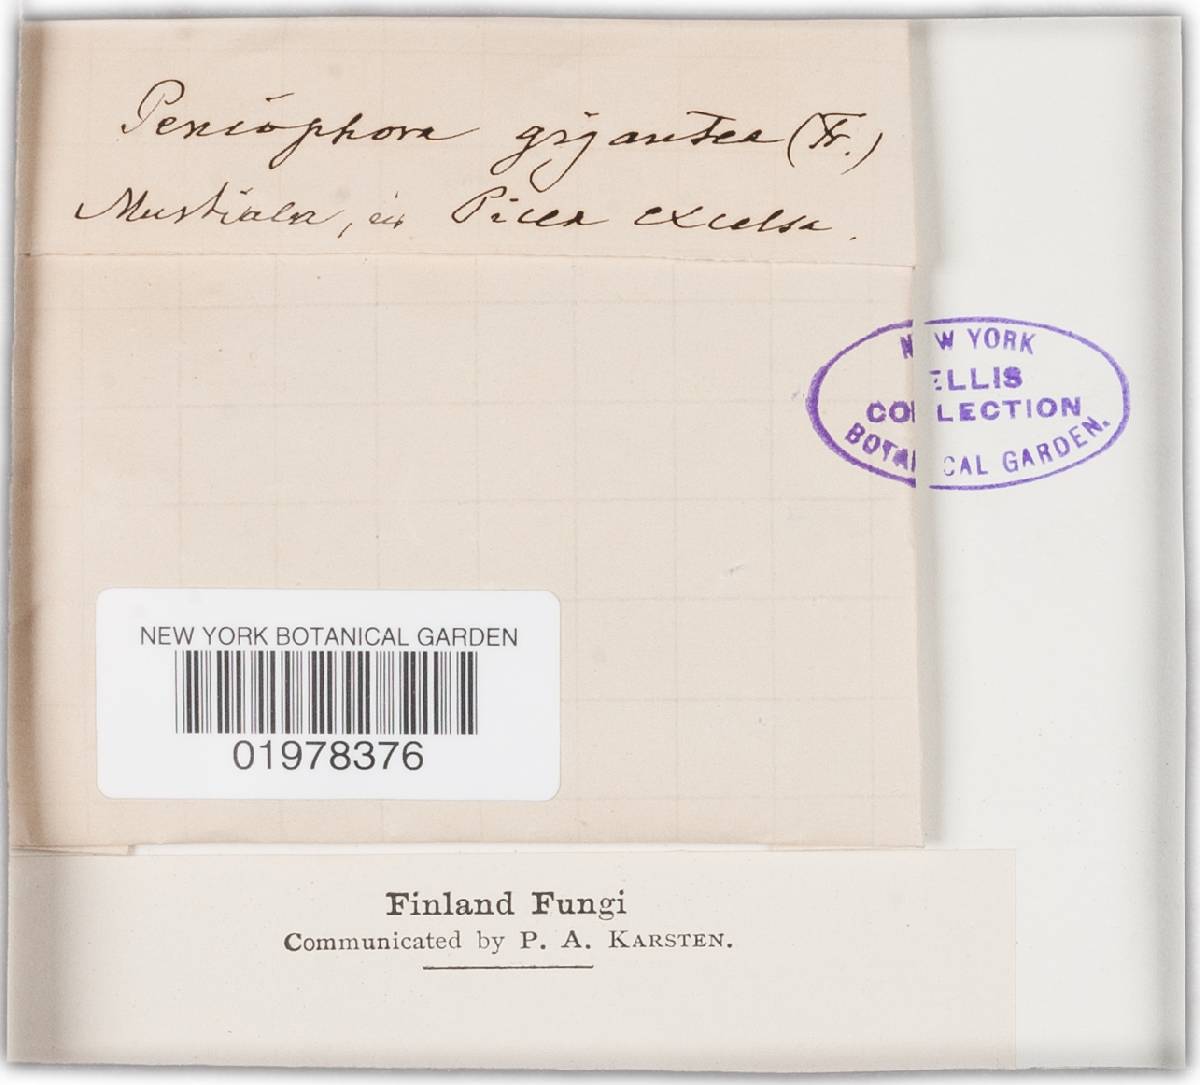 Peniophora gigantea (Fr.)
Mustiala, in Picea excelsa.
NEW YORK
ELLIS
COLLECTION
BOTANICAL GARDEN.
NEW YORK BOTANICAL GARDEN
01978376
Finland Fungi
Communicated by P. A. KARSTEN.